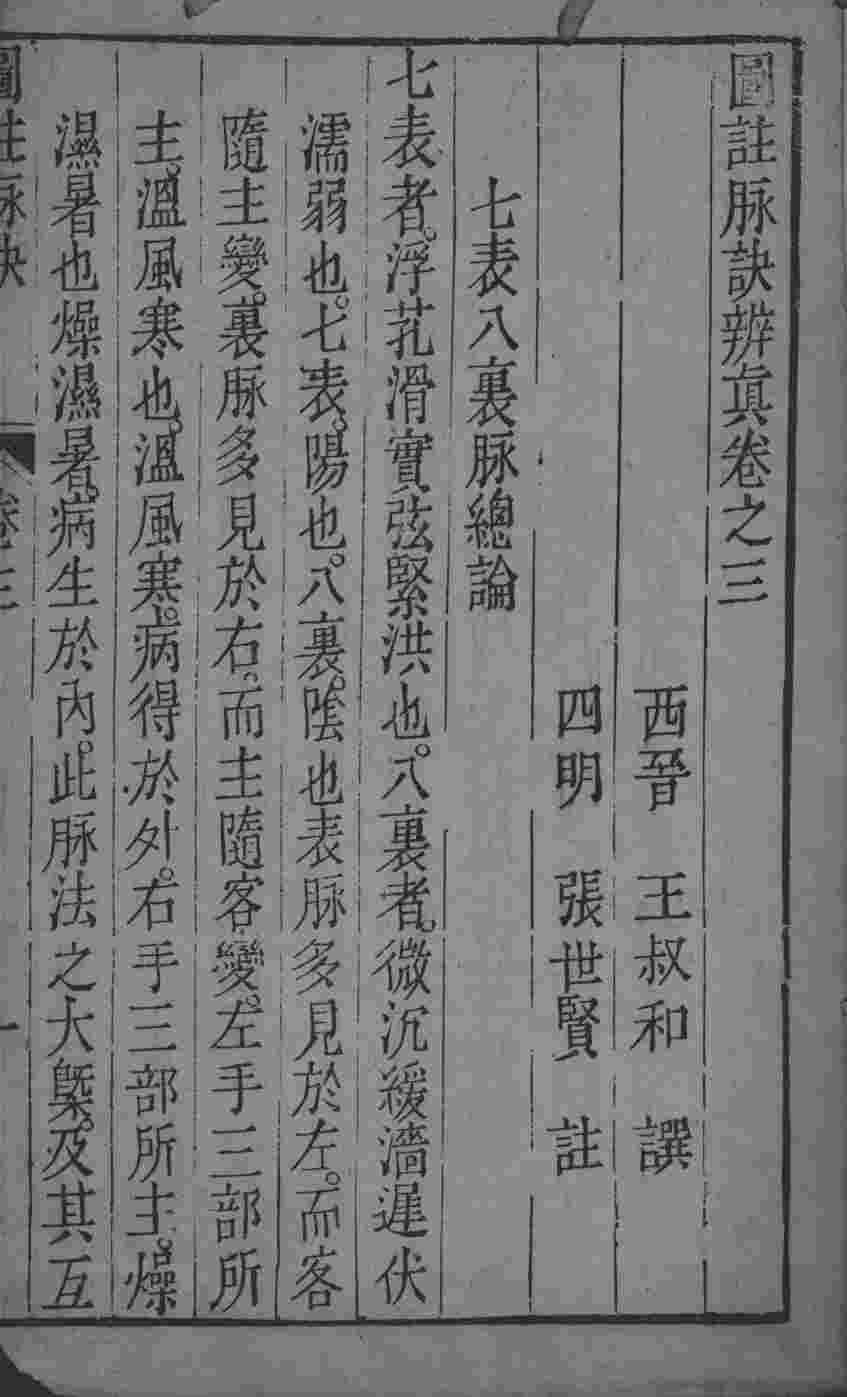 圖註脉訣辨真卷之三
西晉 王叔和 譔
四明 張世賢 註
七表八裏脉總論
七表者。浮芤滑實弦緊洪也。八裏者。微沉緩濇遲伏
濡弱也。七表。陽也。八裏。陰也表脉多見於左。而客
隨主變。裏脉多見於右。而主隨客變。左手三部所
主。溫風寒也。溫風寒。病得於外。右手三部所主。燥
濕暑也燥濕暑。病生於內。此脉法之大槩。及其互
圖註脉訣 卷三 一